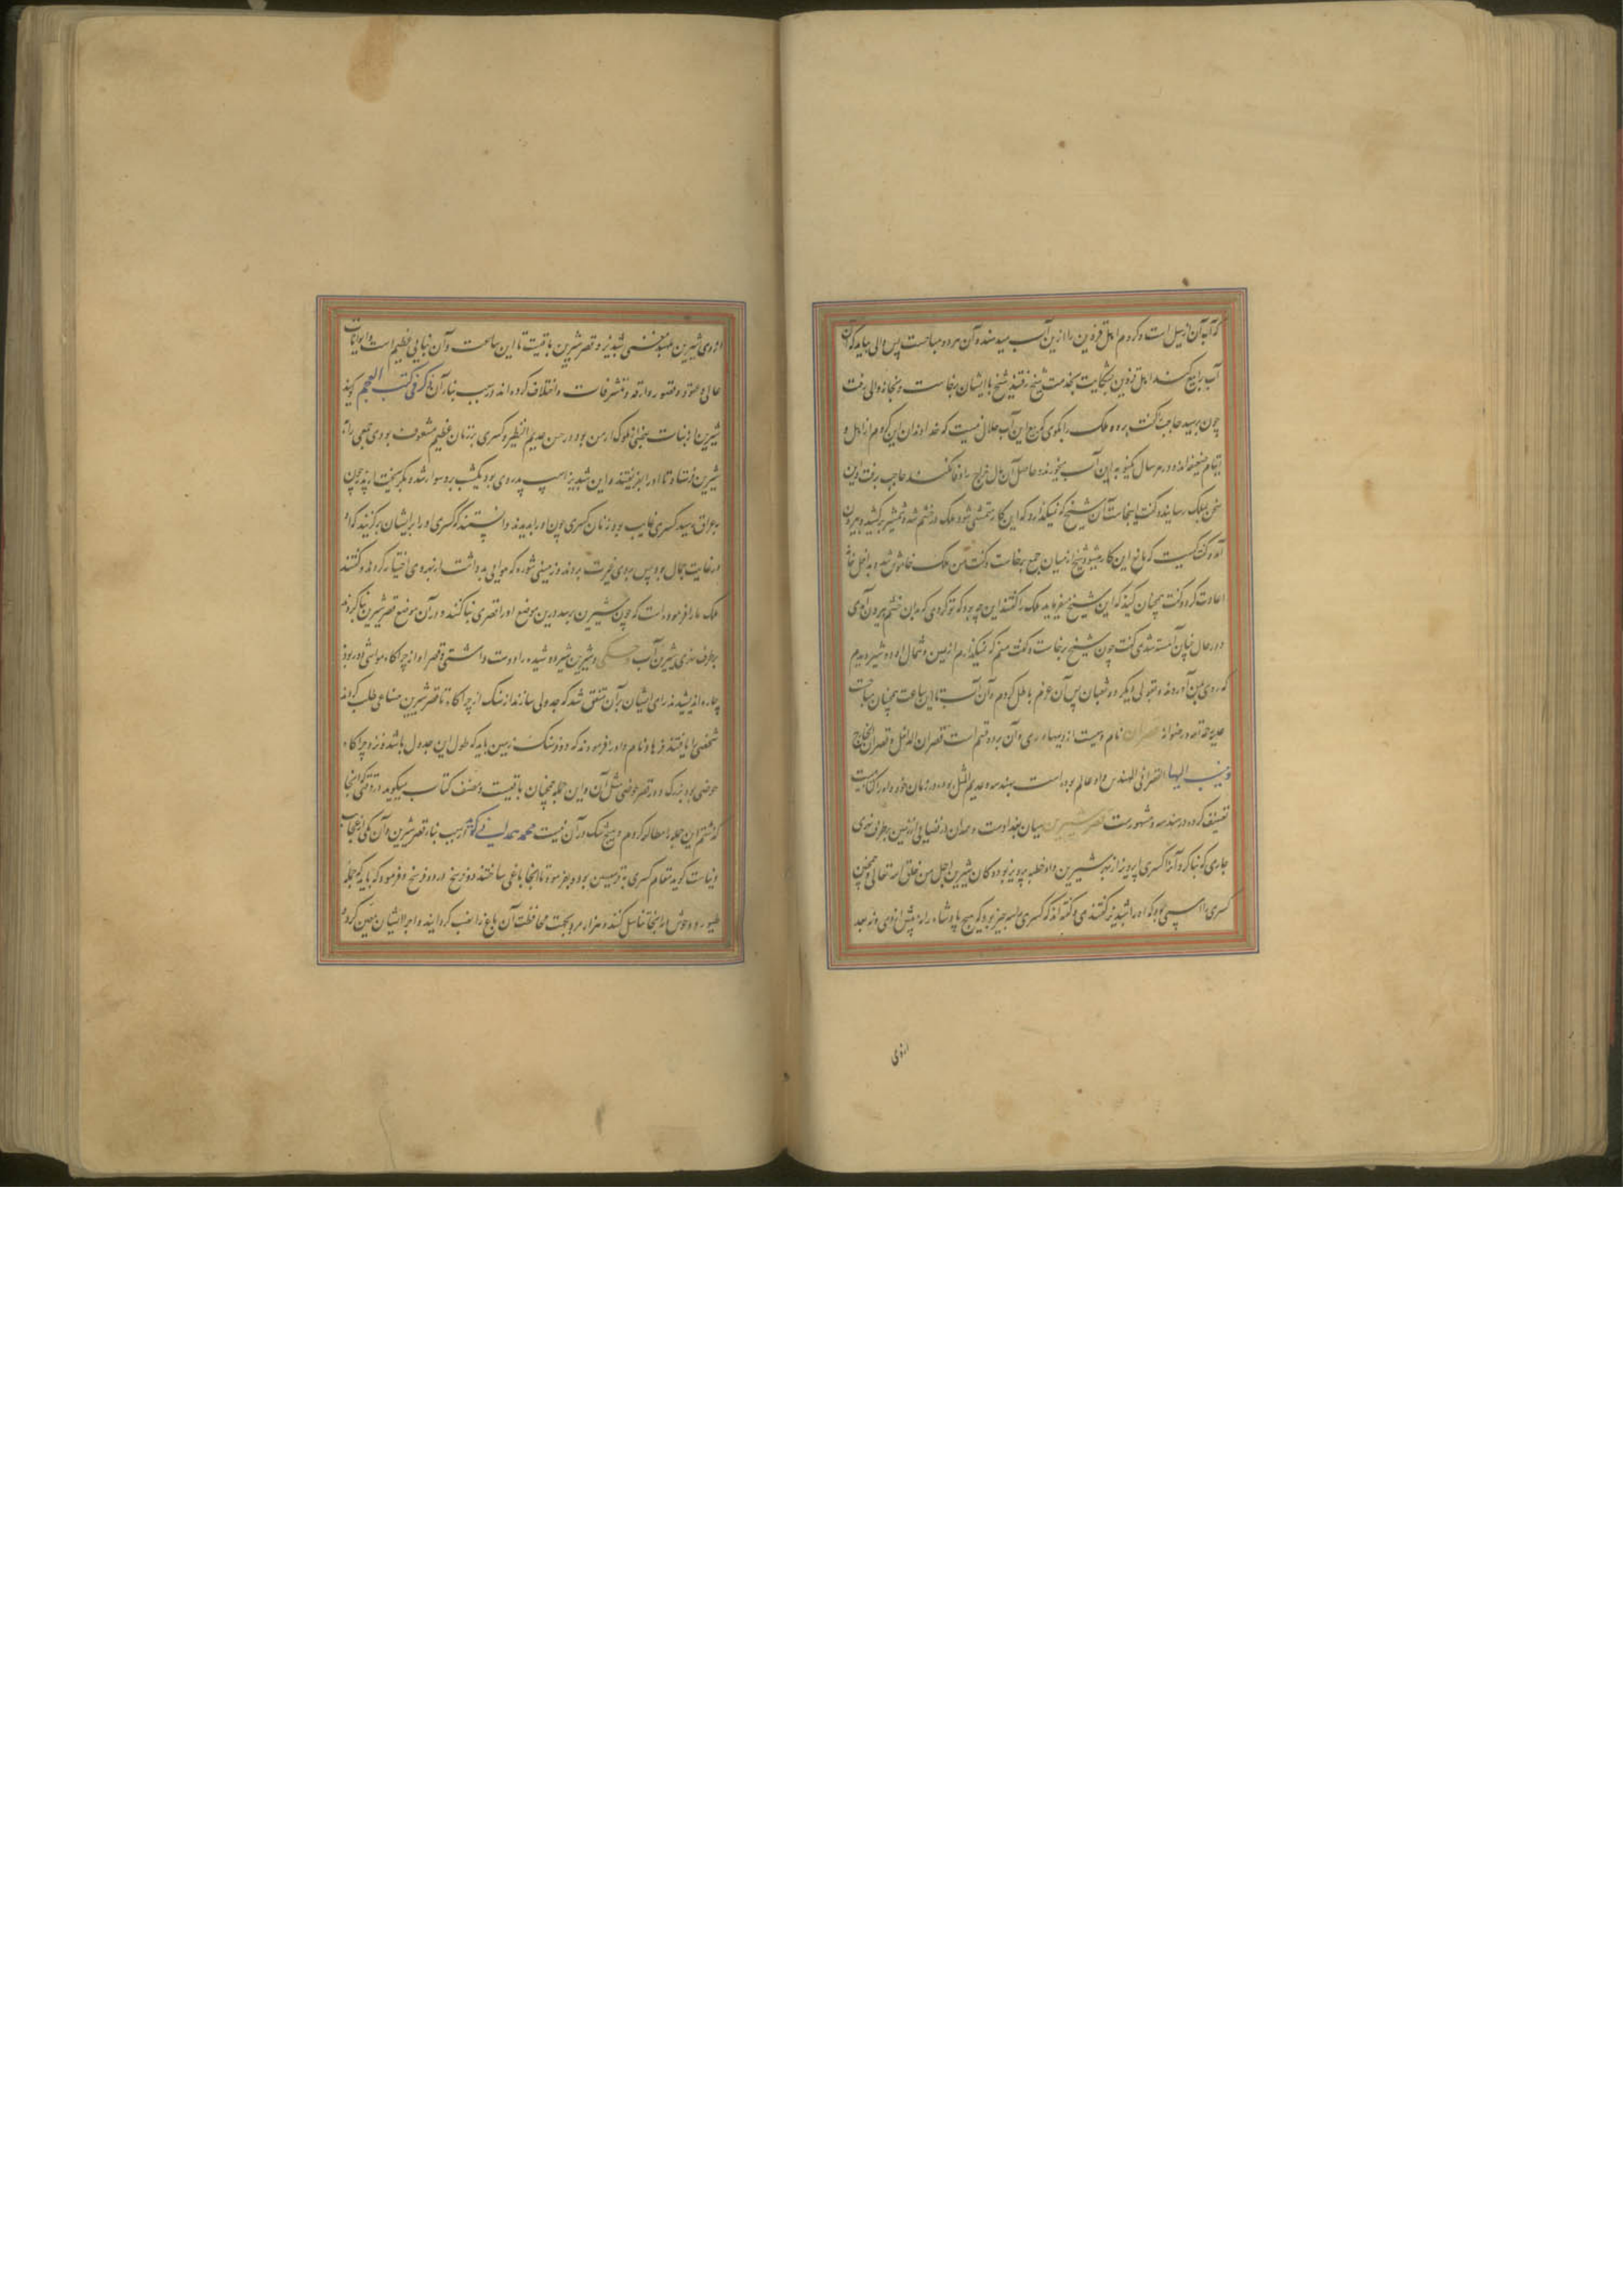 که آبه آن از سیل است و کروم اهل قزوین را ازین آب میدهند و آن مردود مباحست پس والی بیامد که آن
آب را بیع کند اهل قزوین بشکایت بخدمت شیخ رفتند شیخ با ایشان برخاست و بخانه والی رفت
چون برسید حاجب را گفت برو و ملک را بگوی که بیع این آب حلال نیست که خداوندان این کروم ارامل و
ایتام ضعیفه اند و در سال یکنوبه این آب میخورند و حاصل آن مال خراج را وفا نکند حاجب برفت و این
سخن بملک رسانیده گفت اینجاست آن شیخ که نمیگذارد که این کار متمشی شود ملک در خشم شد و شمشیر برکشید و بیرون
آمد و گفت کیست که مانع این کار میشود شیخ از میان جمع برخاست و گفت من ملک خاموش شد و بداخل خانه
اعادت کرد و گفت همچنان کنید که این شیخ میفرماید ملک را گفتند این چه بود که تو کردی که بدان خشم بیرون آمدی
و در حال چنان آهسته شدی گفت چون شیخ برخاست و گفت منم که نمیگذارم از یمین و شمال او دو شیر دیدم
که روی بمن آوردند و بقولی دیگر دو ثعبان پس آن عزم باطل کردم و آن آب تا این ساعت همچنان مباحست
علیه رحمة الله و رضوانه قصران نام دهیست از دیههاء ری و آن بر دو قسم است قصران الداخل و قصران الخارج
و ینسب الیها القصرانی المهندس و او عالم بوده است بهندسه و عدیم المثل بوده در زمان خود و او را کتابیست
تصنیف کرده در هندسه و مشهورست قصر شیرین میان بغداد است و همدان در فضایی از زمین بر طرف نهری
جاری که بنا کرد آنرا کسری اپرویز از بهر شیرین و او خطیبه پرویز بود و کان شیرین اجمل من خلق الله تعالی و همچنین
کسری را اسپی بود که او را شبدیز گفتندی و گفته اند که کسری را سه چیز بود که هیچ پادشاه را نه پیش از وی و نه بعد
ازوی
از وی شیرین و بلهبد مغنی و شبدیز و قصر شیرین باقیست تا این ساعت و آن بنایی عظیم است و ایوانات
عالی و عقود و قصور و اروقه و متشرفات و اختلاف کرده اند در سبب بناء آن ذکر فی کتب العجم گویند
شیرین از بنات بعضی از ملوک ارمن بود در حسن عدیم النظیر و کسری بزنان عظیم مشعوف بودی جمعی را نزد
شیرین فرستاد تا او را بفریفتند و این شبدیز اسپ پدر وی بود یکشب برو سوار شد و بگریخت از پدر چون
بعراق رسید کسری غایب بود زنان کسری چون او را بدیدند دانستند که کسری او را بر ایشان برگزیند که او
در غایت جمال بود پس بروی غیرت بردند و زمینی شوره که هوایی بد داشت از بهر وی اختیار کردند و گفتند
ملک ما را فرموده است که چون شیرین برسد درین موضع او را قصری بنا کنند و در آن موضع قصر شیرین بنا کردند
بر طرف نهری شیرین آب و شیرین شیر دوشیده را دوست داشتی و قصر او از چراگاه مواشی دور بود
چاره اندیشیدند رای ایشان بر آن متفق شد که جدولی سازند از سنگ از چراگاه تا قصر شیرین صناعی طلب کردند
شخصی را یافتند فرهاد نام و او را فرمودند که دو فرسنگ زمین باید که طول این جدول باشد و نزد چراگاه
حوضی بود بزرگ و در قصر حوضی مثل آن و این جمله همچنان باقیست و مصنف کتاب میگوید در وقتی که آنجا
گذشتم این جمله را مطالعه کردم و هیچ شک در آن نیست محمد همدانی گوید سبب بناء قصر شیرین و آن یکی از عجایب
دنیاست گوید مقام کسری به قرمیسین بود و بفرمود تا آنجا باغی ساختند دو فرسخ در دو فرسخ و فرمود که باید که جمله
طیور و وحوش در آنجا تناسل کنند و هزار مرد بجهت محافظت آن باغ را نصب گردانید و اجراء ایشان معین کردند